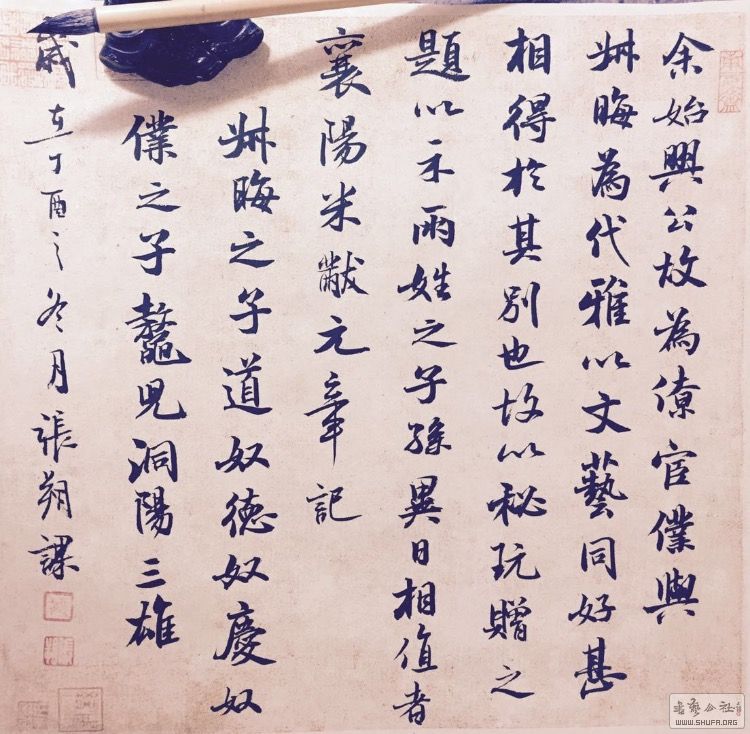 余始興公故為僚官僕與
叔晦為代雅以文藝同好甚
相得於其別也故以秘玩贈之
題以示兩姓之子孫異日相值者
襄陽米黻元章記
叔晦之子道奴德奴慶奴
僕之子鼇兒洞陽三雄
歲在丁酉之冬月張朔課
WWW.SHUFA.ORG